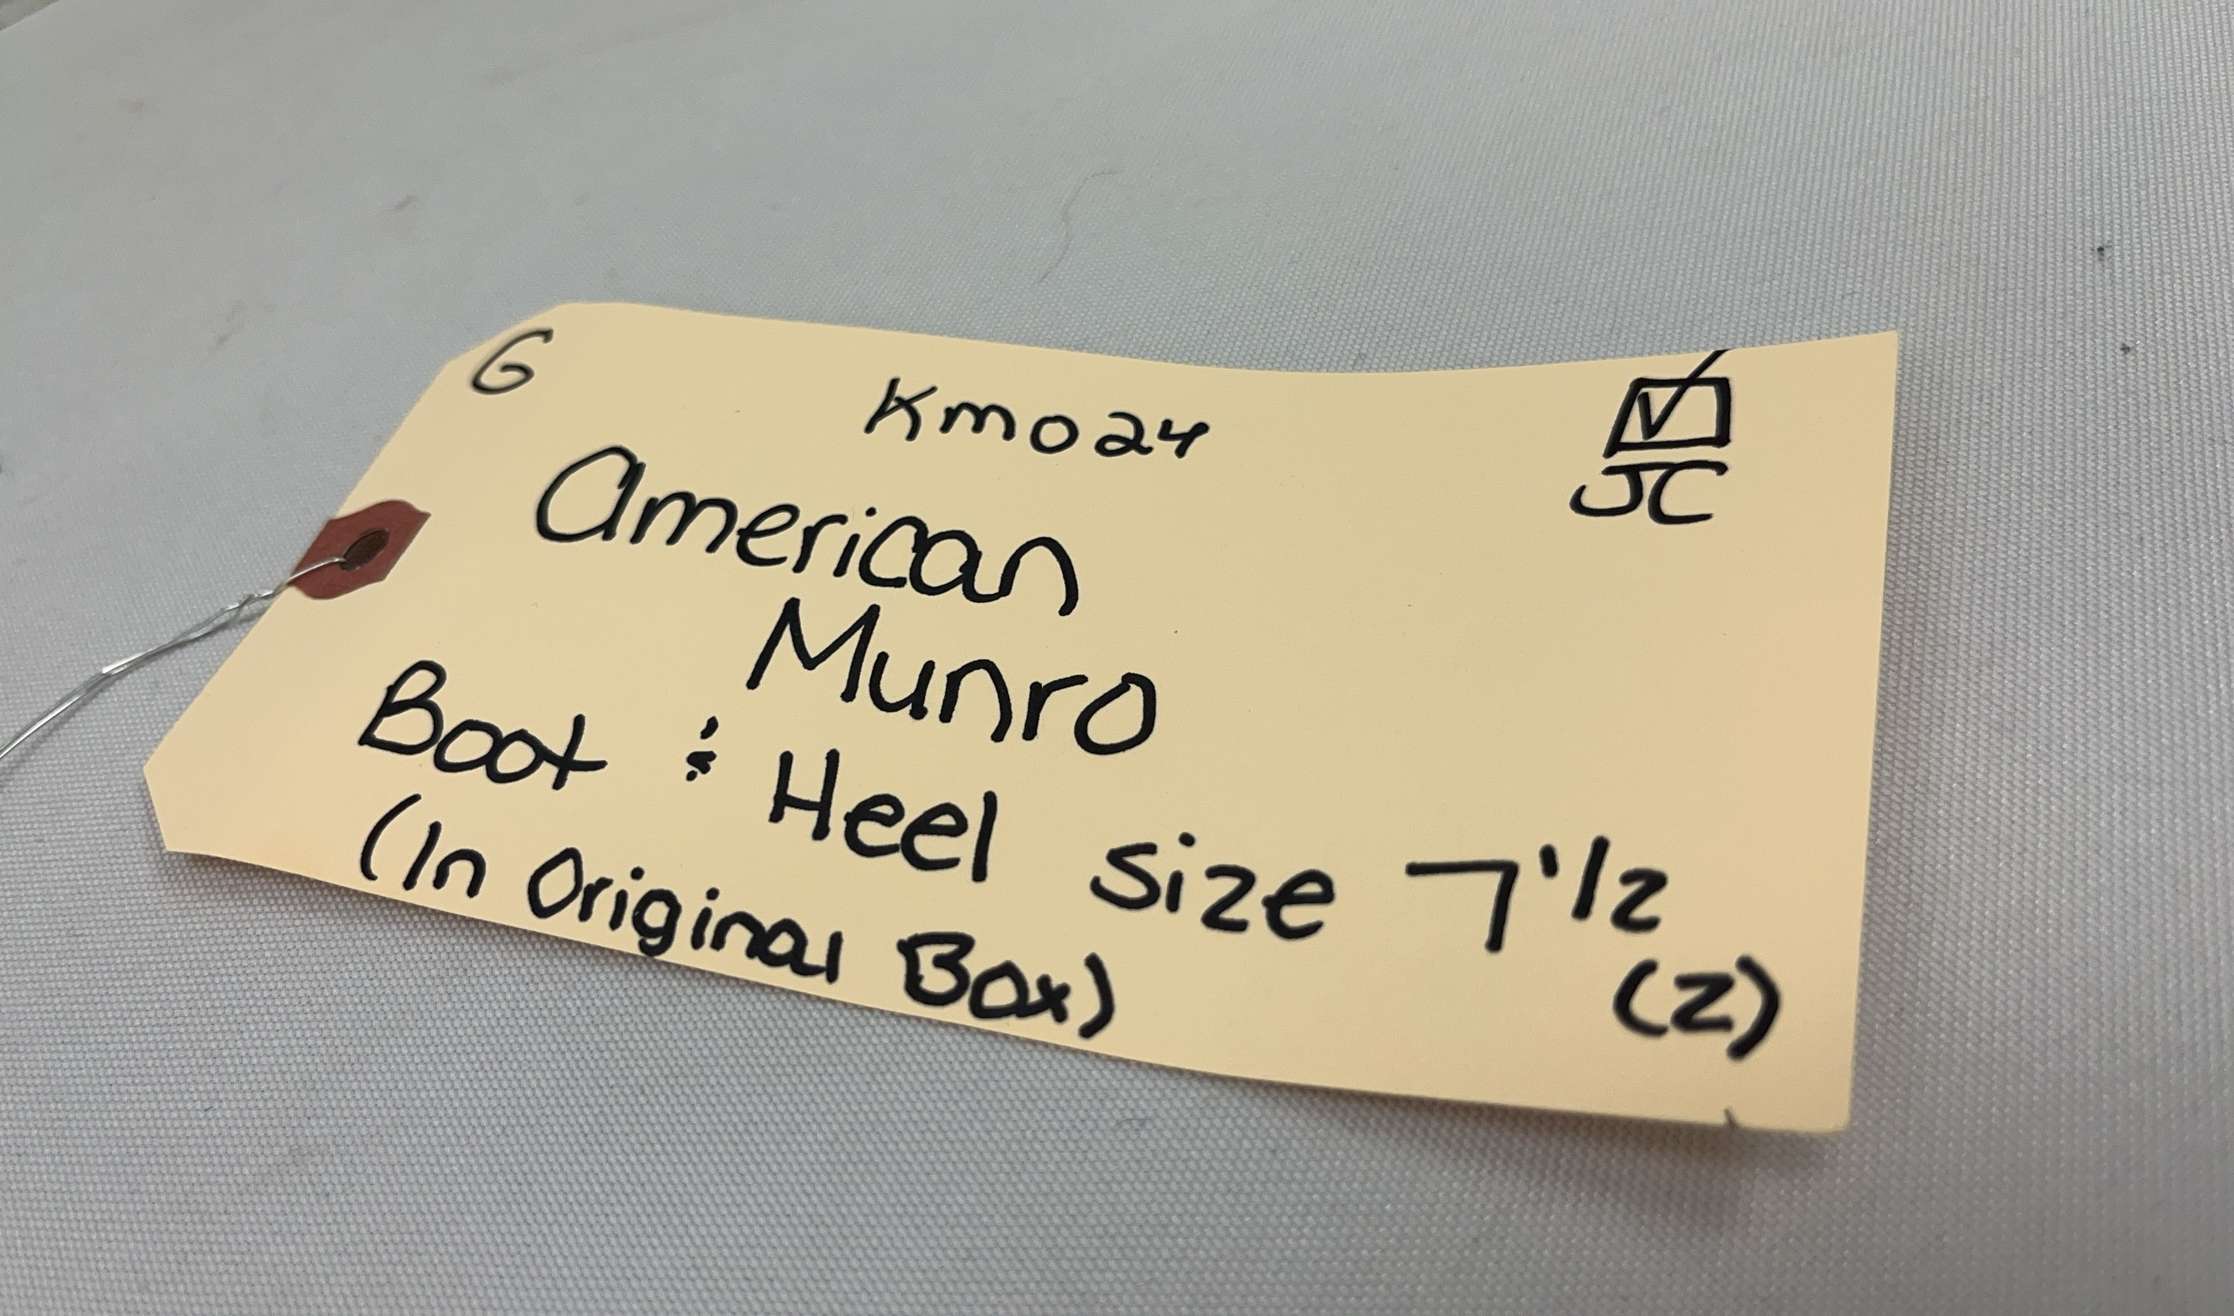 G
Kmo24
☑
JC
American
Munro
Boot & Heel size 7 1/2
(In Original Box)
(2)